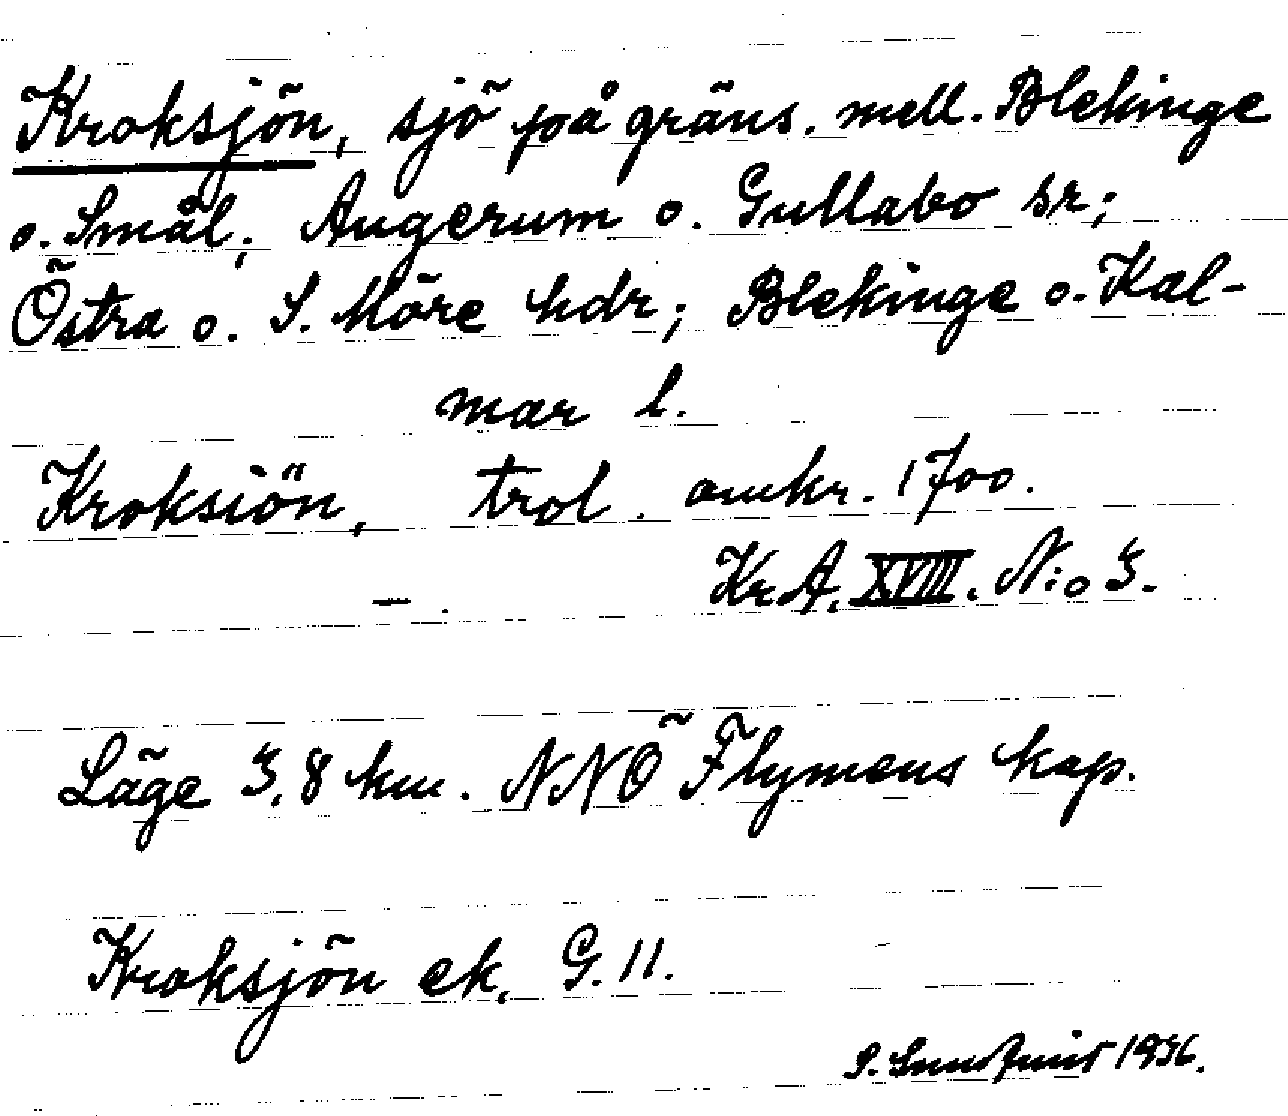 Kroksjön, sjö på gräns. mell. Blekinge
o. Smål; Augerum o. Gullabo sr;
Östra o. S. Möre hdr; Blekinge o. Kal-
mar l.
Kroksiön, trol. omkr. 1700.
— . KrA. XVIII. N:o 3.
Läge 3,8 km. NNÖ Flymens kap.
Kroksjön ek. G. 11.
S. 1936.